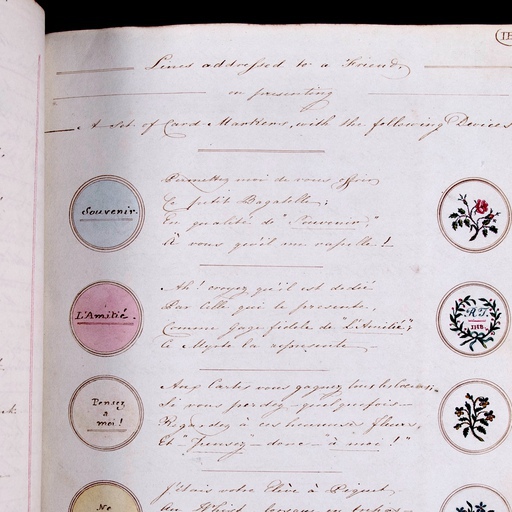 Lines addressed to a Friend,
on presenting
A Set of Card Markers, with the following Devices
Souvenir.
Permettez moi de vous offrir
Ce petit Bagatelle;
En qualité de "Souvenir,"
À vous qu'il me rapelle!
L'Amitié.
Ah! croyez qu'il est dédié
Par celle qui le presente,
Comme Gage fidele de "L'Amitié;"
Ce Myrte la represente
Pensez
à
moi!
Aux Cartes vous gagnez
Si vous perdez quelquefois
Regardez à ces heureuses fleurs,
Et "Pensez" donc "à moi!"
Ne
J'étais votre Elève à Piquet